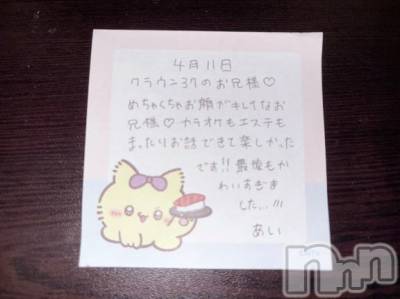 4月11日
クラウン37のお兄様♡
めちゃくちゃお顔がキレイなお
兄様♡カラオケもエステも
まったりお話できて楽しかった
です!!最後もか
わいすぎま
した...///
あい